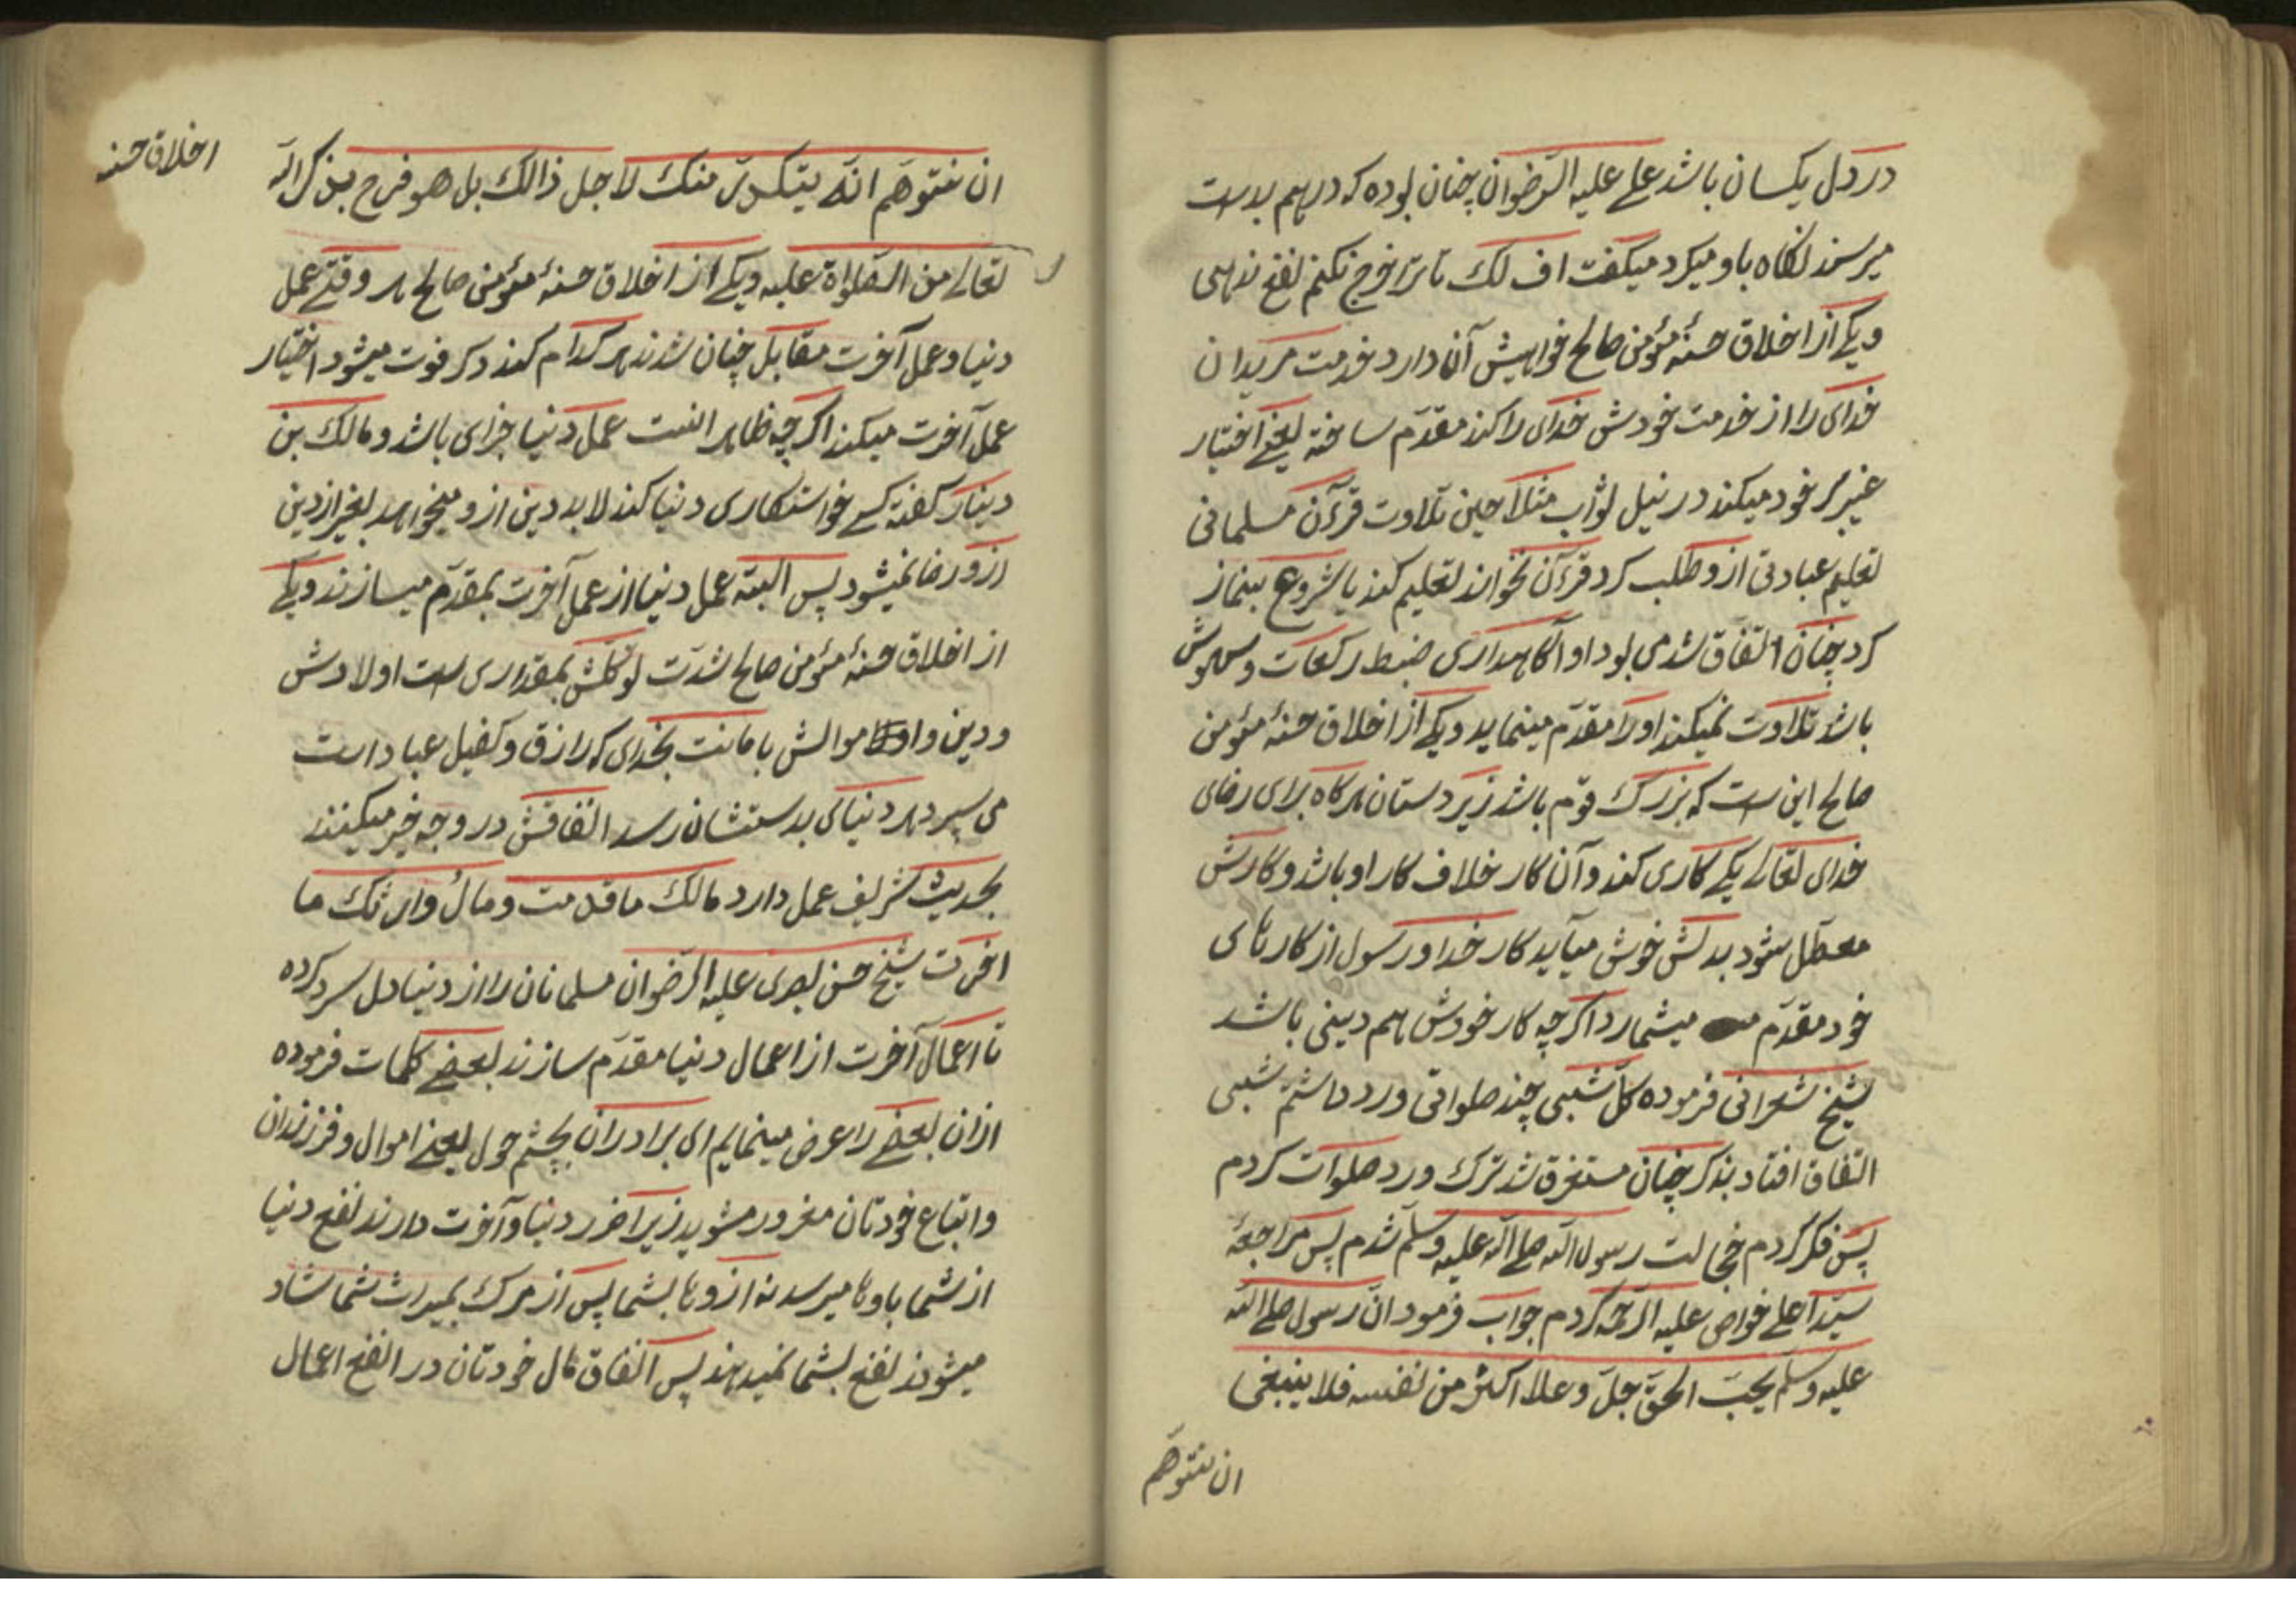 در دل یکسان باشد علی علیه الرضوان چنان بوده که درهم بدست
میرسند نگاه باو میکرد میکفت اف لک تا ترا خرج نکنم نفع ندهی
ویکی از اخلاق حسنهٔ مؤمن صالح خواهیش آن دارد خدمت مریدان
خدای را از خدمت خودش خدای را کند مقدّم ساخته یعنی اختیار
غیر بر خود میکند در نیل ثواب مثلا حین تلاوت قرآن مسلمانی
تعلیم عبادتی ازو طلب کرد قرءآن نخواند تعلیم کند یا شروع بنماز
کرد چنان اتفاق شدمی بود او آگاهداری ضبط رکعات و سهوش
باشد تلاوت نمیکند او را مقدّم مینماید ویکی از اخلاق حسنهٔ مؤمن
صالح این ست که بزرک قوم باشد زیردستان هرکاه برای رضای
خدای تعالی یکی کاری کند و آن کار خلاف کار او باشد و کارش
معطّل شود بدلش خوش میآید کار خدا و رسول از کارهای
خود مقدّم میشمارد اکرچه کار خودش هم دینی باشد
شیخ شعرانی فرموده کلّ شبی چند صلواتی ورد داشتم شبی
اتفاق افتاد بذکر چنان مستغرق شد ترک ورد صلوات کردم
پس فکر کردم خجالت رسول الله صلی الله علیه وسلّم شدم پس مراجعهٔ
سیّدا علی خواص علیه الرحمه کردم جواب فرمود انّ رسول صلی الله
علیه وسلّم یحبّ الحقّ جلّ وعلا اکثر من نفسه فلا ینبغی
ان تتوهّم
اخلاق حسنه
ان تتوهّم انّه یتکدّر منک لاجل ذالک بل هو فرح بذکر الله
تعالی من الصّلواة علیه ویکی از اخلاق حسنهٔ مؤمن صالح هر وقتی عمل
دنیا و عمل آخرت مقابل چنان شدند هر کدام کند دکر فوت میشود اختیار
عمل آخرت میکند اکرچه ظاهر انست عمل دنیا جزای باشد و مالک بن
دینار کفته کسی خواستکاری دنیا کند لابد دین ازو میخواهد بغیر از دین
ازو رضا نمیشود پس البته عمل دنیا از عمل آخرت بمقدّم میسازند ویکی
از اخلاق حسنهٔ مؤمن صالح شدّت توکلش بمقداری ست اولادش
ودین و اموالش بامانت بخدای که رازق و کفیل عباد است
می سپرد هر دنیای بدستشان رسد انفاقش در وجه خیر میکنند
بحدیث شریف عمل دارد مالک ما قدمت ومال وارثک ما
اخرت شیخ حسن بصری علیه الرضوان مسلمانان را از دنیا دل سرد کرده
تا اعمال آخرت از اعمال دنیا مقدّم سازند بعضی کلمات فرموده
ازان بعضی را عرض مینمایم ای برادران بچشم حول یعنی اموال و فرزندان
و اتباع خودتان مغرور مشوید زیرا ضرر دنیا و آخرت دارند نفع دنیا
از شما باوها میرسد نه ازوها بشما پس از مرک بمیراث شما شاد
میشوند نفع بشما نمیدهند پس انفاق مال خودتان در انفع اعمال